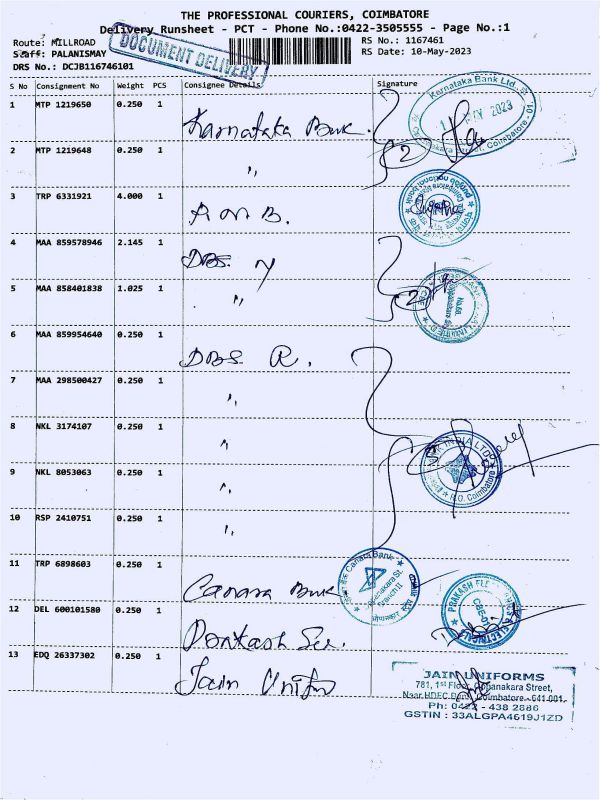 THE PROFESSIONAL COURIERS, COIMBATORE
Delivery Runsheet - PCT - Phone No.:0422-3505555 - Page No.:1
Route: MILLROAD
RS No.: 1167461
Staff: PALANISMAY
RS Date: 10-May-2023
DRS No.: DCJB116746101
DOCUMENT DELIVERY
S No Consignment No Weight PCS Consignee Details Signature
1 MTP 1219650 0.250 1 Karnataka Bank
Karnataka Bank Ltd.
2023
Coimbatore - 01
2 MTP 1219648 0.250 1 "
2
3 TRP 6331921 4.000 1
punjab national bank
4 MAA 859578946 2.145 1 DBS. y
5 MAA 858401838 1.025 1 "
2
6 MAA 859954640 0.250 1 DBS R.
7 MAA 298500427 0.250 1 "
8 NKL 3174107 0.250 1 "
INDIA LTD
R.O. Coimbatore
9 NKL 8053063 0.250 1 "
10 RSP 2410751 0.250 1 "
11 TRP 6898603 0.250 1 Canara Bank
Canara Bank
Branch II
12 DEL 600101580 0.250 1
PRAKASH
13 EDQ 26337302 0.250 1 Jain Unifo
JAIN UNIFORMS
781, 1st Floor, Oppanakara Street,
Near HDFC Bank, Coimbatore - 641 001.
Ph: 0422 - 438 2886
GSTIN : 33ALGPA4619J1ZD